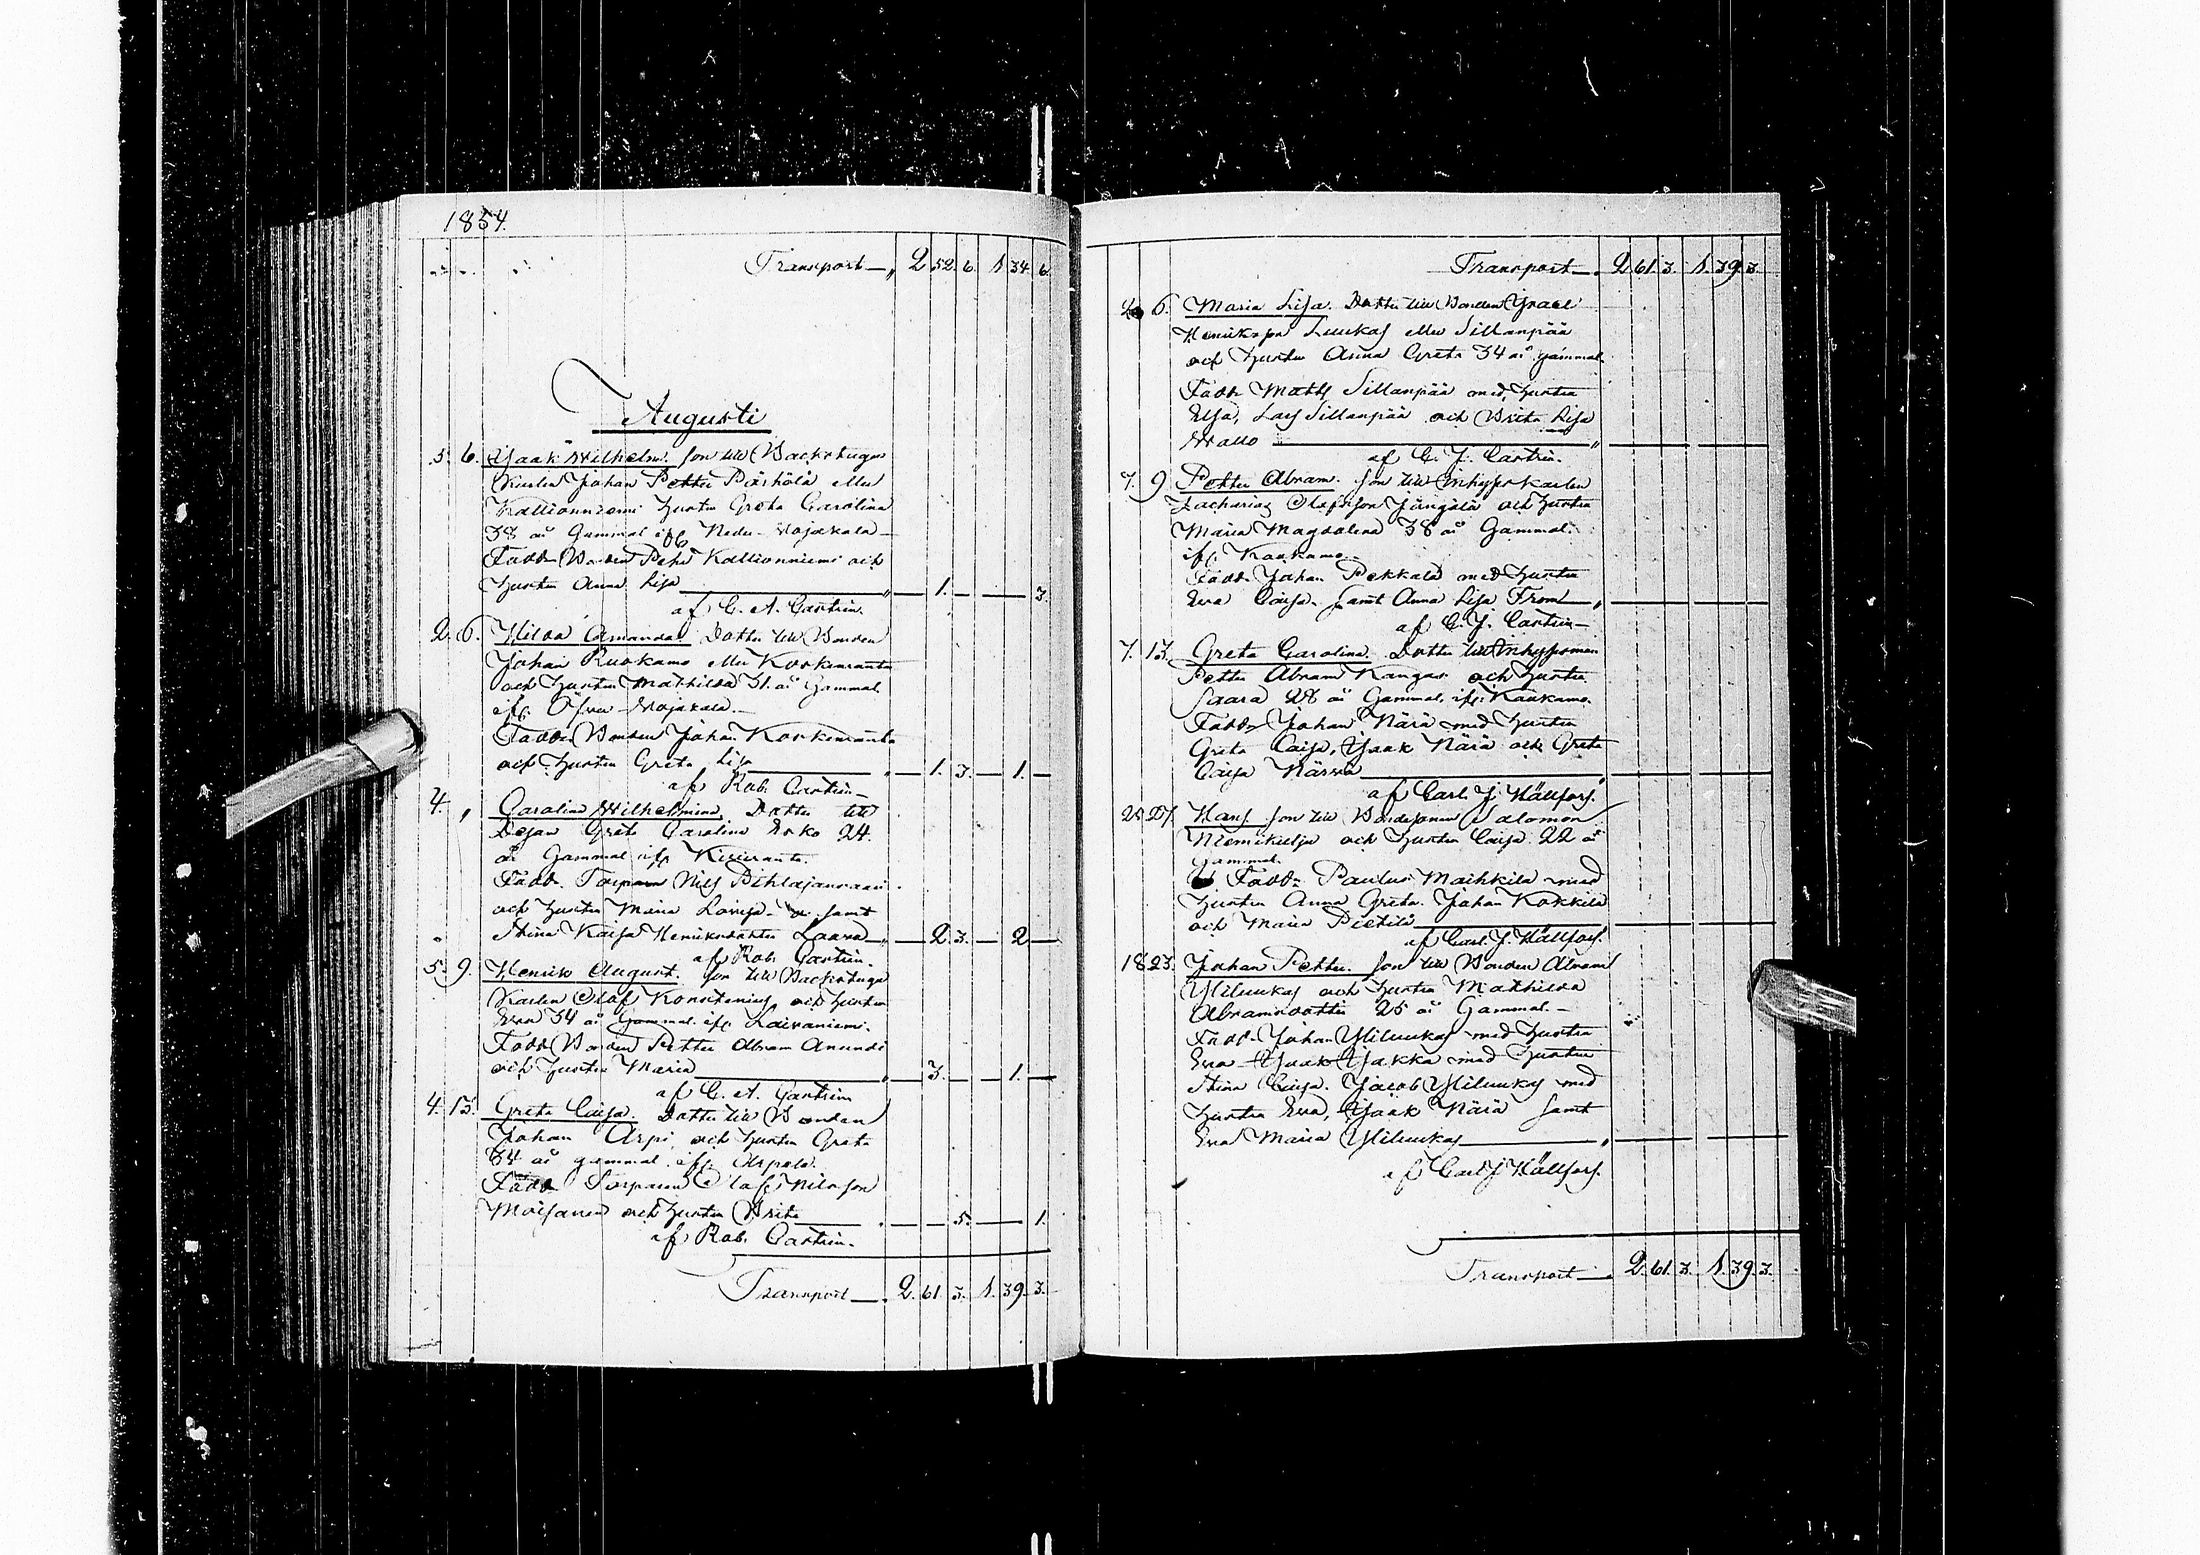 1854.
Transport — " 2 52. 6. 1. 34. 6.
Augusti
3. 6. Isaak Wilhelm. Son till Backstugu
Karlen Johan Petter Pörhölä eller
Kallionniemi hustru Greta Carolina
38 år Gammal ifr. Neder-Vojakala —
Fadd. Bonden Peter Kallionniemi och
hustru Anna Lisa — " — 1. — — 3.
af C. A. Castrén.
2. 6. Hilda Amanda. Dotter till Bonden
Johan Ruokamo eller Koskenranta
och hustru Mathilda 31. år Gammal.
ifr. Öfver-Vojakala. —
Fadd. Bonden Johan Koskenranta
och hustru Greta Lisa — " — 1. 3. — 1. —
af Rob. Castrén —
4. " Carolina Wilhelmina. Dotter till
Pigan Greta Carolina Erko 24.
år Gammal ifr. Kiviranta.
Fadd. Torparen Nils Pihlajanmaa
och hustru Maria Lovisa samt
Stina Kaisa Henriksdotter Laara — " — 2. 3. — 2 —
af Rob. Castrén.
5. 9. Henrik August. Son till Backstugu
Karlen Olof Konstenius och hustru
Eva 34 år Gammal. ifr. Laivaniemi.
Fadd. Bonden Petter Abram Anundi
och hustru Maria — " — 3. — 1. —
af C. A. Castrén
4. 13. Greta Caisa. Dotter till Bonden
Johan Arpi, och hustru Greta
34 år gammal. ifr. Arpela.
Fadd. Torparen Olof Nilsson
Moisanen och hustru Brita — . — — 5. — — 1.
af Rob. Castrén.
Transport — . 2. 61. 3. 1. 39. 3.
Transport — . 2 61. 3. 1. 39. 3.
6. Maria Lisa. Dotter till Bonden Israel
Henriksson Luukas eller Sillanpää
och hustru Anna Greta 34 år gammal.
Fadd. Matts Sillanpää med hustru
Elsa, Lars Sillanpää och Brita Lisa
Wallo — "
af C. J. Castrén.
7. 9 Petter Abram. Son till Inhyses Karlen
Zacharias Olofsson Jungälä och hustru
Maria Magdalena 38 år Gammal.
ifr. Kaakamo —
Fadd. Johan Pekkala med hustru
Eva Caisa. samt Anna Lisa From — "
af C. J. Castrén —
7. 13. Greta Carolina. Dotter till Inhysesman
Petter Abram Kangas och hustru
Saara 28 år Gammal. ifr. Kaakamo.
Fadd. Johan Närä med hustru
Greta Caisa, Isaak Närä och Greta
Caisa Närvä — "
af Carl. J. Hällfors.
27. Hans. Son till Bondesonen Salomon
Niemikulja och hustru Caisa 22 år
gammal.
Fadd. Paulus Maihkila med
hustru Anna Greta. Johan Kokkila
och Maria Pietilä — "
af Carl. J. Hällfors.
18. 23. Johan Petter. Son till Bonden Abram
Yliluukas och hustru Mathilda
Abramsdotter 25 år Gammal. —
Fadd. Johan Yliluukas med hustru
Eva — Isaak Jakka med hustru
Stina Caisa. Jacob Yliluukas med
hustru Eva, Isaak Närä samt
Eva Maria Yliluukas — "
af Carl J Hällfors.
Transport — . 2. 61. 3. 1. 39. 3.